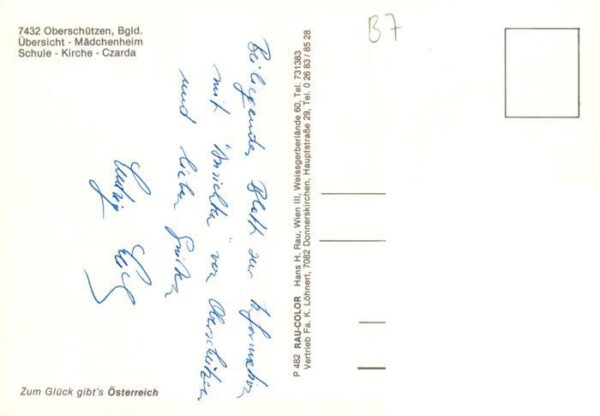 7432 Oberschützen, Bgld.
Übersicht · Mädchenheim
Schule · Kirche · Czarda
B7
Beiliegendes Blatt zur Information
mit "Ansichten" von Oberschützen
und lieben Grüßen
Ludwig
P 482 RAU-COLOR Hans H. Rau, Wien III, Weissgerberlände 60, Tel. 731383
Vertrieb Fa. K. Löhnert, 7082 Donnerskirchen, Hauptstraße 29, Tel. 0 26 83 / 85 28
Zum Glück gibt's Österreich